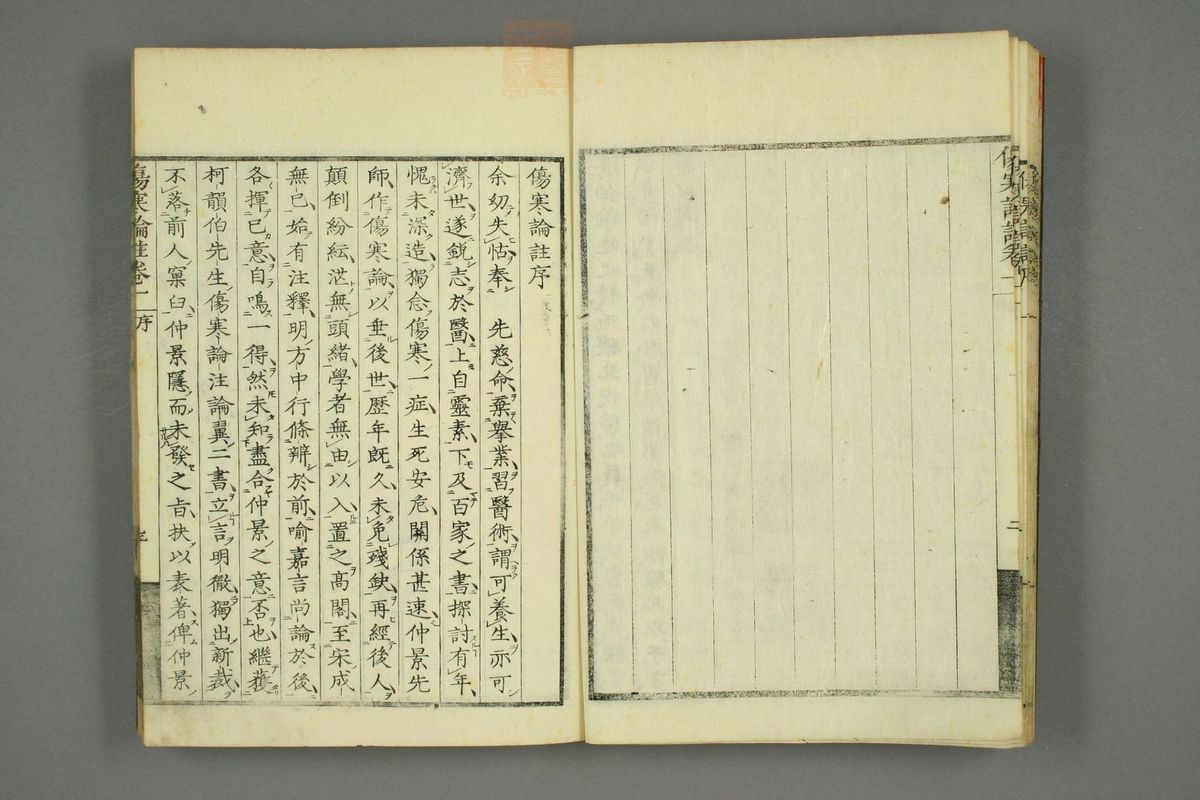 傷寒論註序
余幼失怙奉　先慈命棄擧業習醫術謂可養生亦可
濟世遂銳志於醫上自靈素下及百家之書探討有年
愧未深造獨念傷寒一症生死安危關係甚速仲景先
師作傷寒論以垂後世歷年既久未免殘缺再經後人
顛倒紛紜茫無頭緒學者無由以入置之高閣至宋成
無已始有注釋明方中行條辨於前喻嘉言尚論於後
各揮已意自鳴一得然未知盡合仲景之意否也繼獲
柯韻伯先生傷寒論注論翼二書立言明微獨出新裁
不落前人窠臼仲景隱而未發之旨抉以表著俾仲景
傷寒論註卷一序